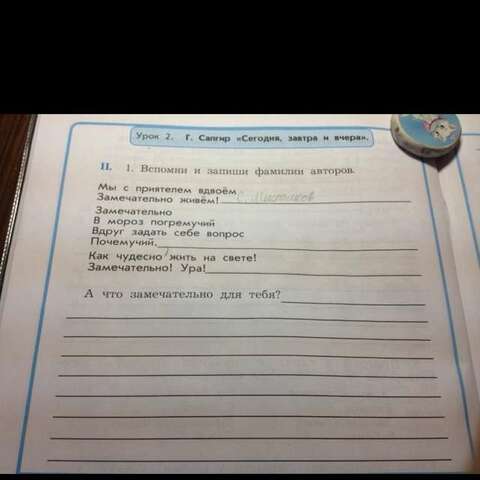 Урок 2. Г. Сапгир «Сегодня, завтра и вчера».
II. 1. Вспомни и запиши фамилии авторов.
Мы с приятелем вдвоём
Замечательно живём! С. Михалков
Замечательно
В мороз погремучий
Вдруг задать себе вопрос
Почемучий.
Как чудесно жить на свете!
Замечательно! Ура!
А что замечательно для тебя?